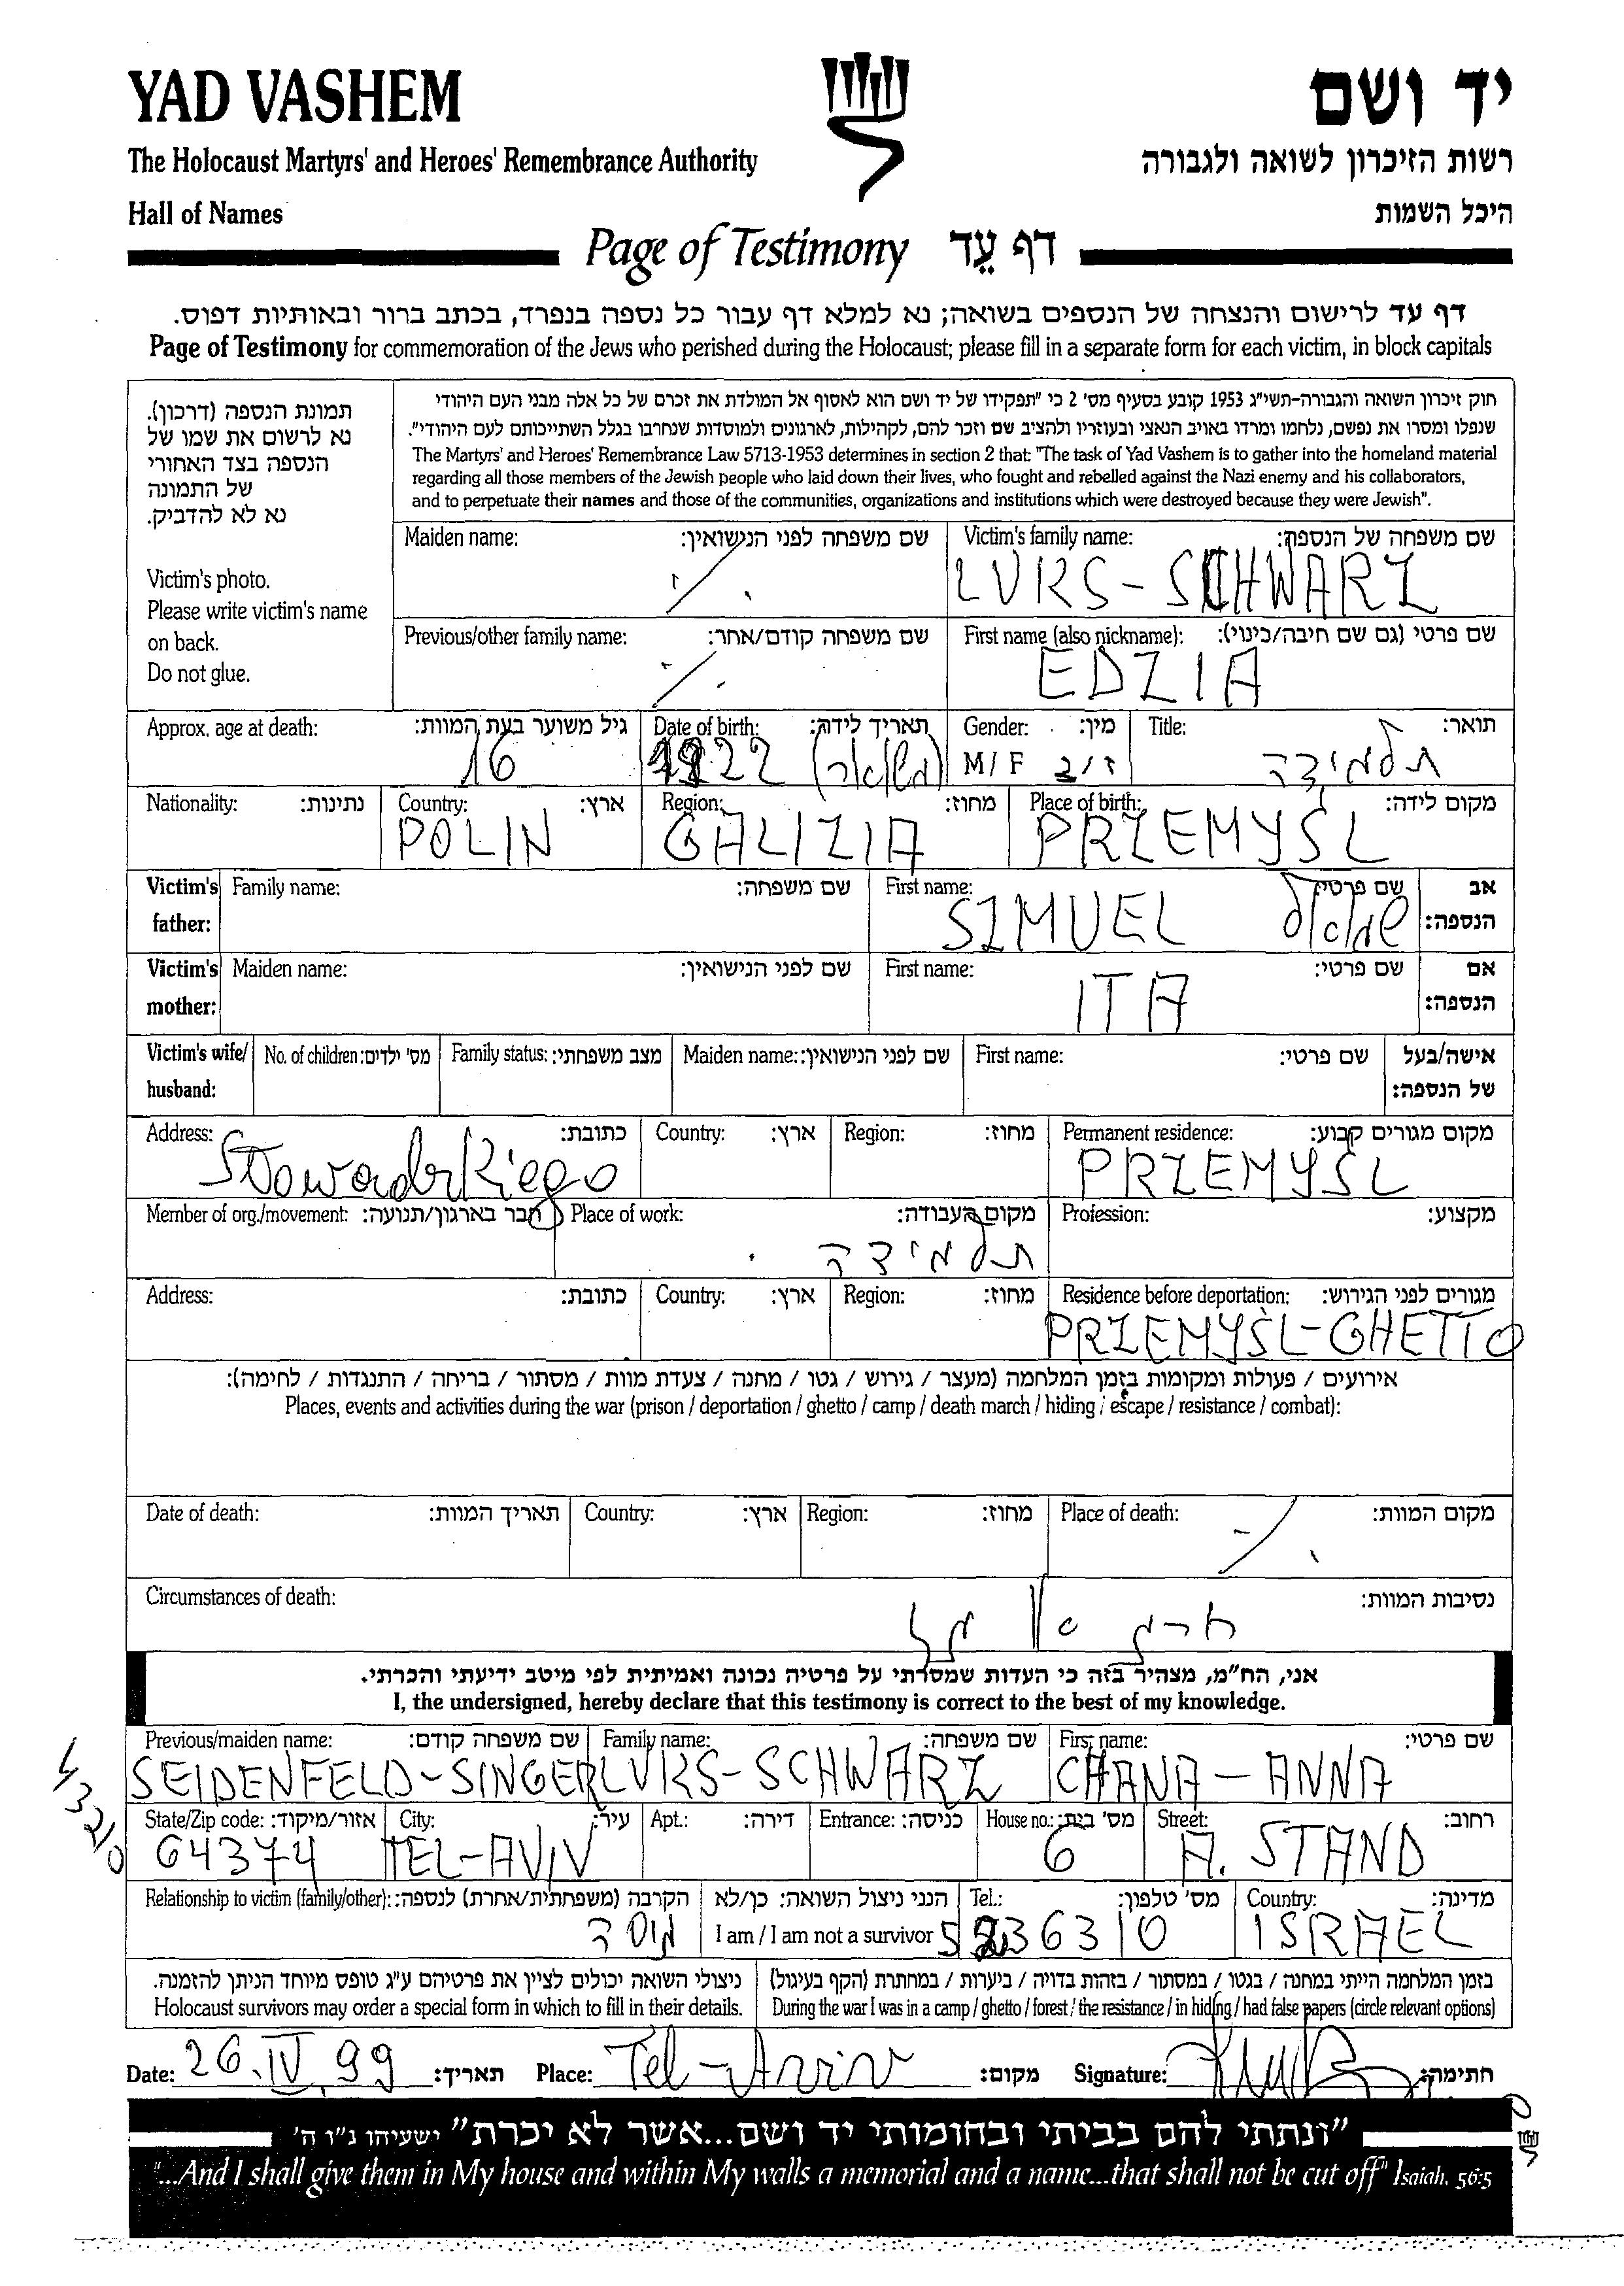 YAD VASHEM
יד ושם
The Holocaust Martyrs' and Heroes' Remembrance Authority
רשות הזיכרון לשואה ולגבורה
Hall of Names
היכל השמות
Page of Testimony דף עֵד
דף עד לרישום והנצחה של הנספים בשואה; נא למלא דף עבור כל נספה בנפרד, בכתב ברור ובאותיות דפוס.
Page of Testimony for commemoration of the Jews who perished during the Holocaust; please fill in a separate form for each victim, in block capitals
תמונת הנספה (דרכון).
נא לרשום את שמו של
הנספה בצד האחורי
של התמונה
נא לא להדביק.
Victim's photo.
Please write victim's name
on back.
Do not glue.
חוק זיכרון השואה והגבורה-תשי"ג 1953 קובע בסעיף מס' 2 כי "תפקידו של יד ושם הוא לאסוף אל המולדת את זכרם של כל אלה מבני העם היהודי
שנפלו ומסרו את נפשם, נלחמו ומרדו באויב הנאצי ובעוזריו ולהציב שם וזכר להם, לקהילות, לארגונים ולמוסדות שנחרבו בגלל השתייכותם לעם היהודי".
The Martyrs' and Heroes' Remembrance Law 5713-1953 determines in section 2 that: "The task of Yad Vashem is to gather into the homeland material
regarding all those members of the Jewish people who laid down their lives, who fought and rebelled against the Nazi enemy and his collaborators,
and to perpetuate their names and those of the communities, organizations and institutions which were destroyed because they were Jewish".
Maiden name: שם משפחה לפני הנישואין: Victim's family name: שם משפחה של הנספה:
LUKS-SCHWARZ
Previous/other family name: שם משפחה קודם/אחר: First name (also nickname): שם פרטי (גם שם חיבה/כינוי):
EDZIA
Approx. age at death: גיל משוער בעת המוות: Date of birth: תאריך לידה: Gender: מין: Title: תואר:
16 1922 M/F ז/נ תלמידה
Nationality: נתינות: Country: ארץ: Region: מחוז: Place of birth: מקום לידה:
POLIN GALIZIA PRZEMYŚL
Victim's father: Family name: שם משפחה: First name: שם פרטי: אב הנספה:
SZMUEL שמואל
Victim's mother: Maiden name: שם לפני הנישואין: First name: שם פרטי: אם הנספה:
ITA
Victim's wife/ husband: No. of children: מס' ילדים: Family status: מצב משפחתי: Maiden name: שם לפני הנישואין: First name: שם פרטי: אישה/בעל של הנספה:
Address: כתובת: Country: ארץ: Region: מחוז: Permanent residence: מקום מגורים קבוע:
PRZEMYŚL
Member of org./movement: חבר בארגון/תנועה: Place of work: מקום העבודה: Profession: מקצוע:
תלמידה
Address: כתובת: Country: ארץ: Region: מחוז: Residence before deportation: מגורים לפני הגירוש:
PRZEMYŚL-GHETTO
אירועים / פעולות ומקומות בזמן המלחמה (מעצר / גירוש / גטו / מחנה / צעדת מוות / מסתור / בריחה / התנגדות / לחימה):
Places, events and activities during the war (prison / deportation / ghetto / camp / death march / hiding / escape / resistance / combat):
Date of death: תאריך המוות: Country: ארץ: Region: מחוז: Place of death: מקום המוות:
Circumstances of death: נסיבות המוות:
אני, הח"מ, מצהיר בזה כי העדות שמסרתי על פרטיה נכונה ואמיתית לפי מיטב ידיעתי והכרתי.
I, the undersigned, hereby declare that this testimony is correct to the best of my knowledge.
Previous/maiden name: שם משפחה קודם: Family name: שם משפחה: First name: שם פרטי:
SEIDENFELD-SINGER LUKS-SCHWARZ CHANA-ANNA
43210
State/Zip code: אזור/מיקוד: City: עיר: Apt.: דירה: Entrance: כניסה: House no.: מס' בית: Street: רחוב:
64374 TEL-AVIV 6 A. STAND
Relationship to victim (family/other): הקרבה (משפחתית/אחרת) לנספה: הנני ניצול השואה: כן/לא Tel.: מס' טלפון: Country: מדינה:
גיסה I am / I am not a survivor 5236310 ISRAEL
ניצולי השואה יכולים לציין את פרטיהם ע"ג טופס מיוחד הניתן להזמנה.
Holocaust survivors may order a special form in which to fill in their details.
בזמן המלחמה הייתי במחנה / בגטו / במסתור / בזהות בדויה / ביערות / במחתרת (הקף בעיגול)
During the war I was in a camp / ghetto / forest / the resistance / in hiding / had false papers (circle relevant options)
Date: 26.IV.99 תאריך: Place: Tel-Aviv מקום: Signature: חתימה:
"ונתתי להם בביתי ובחומותי יד ושם...אשר לא יכרת" ישעיהו נ"ו ה'
"...And I shall give them in My house and within My walls a memorial and a name...that shall not be cut off" Isaiah, 56:5